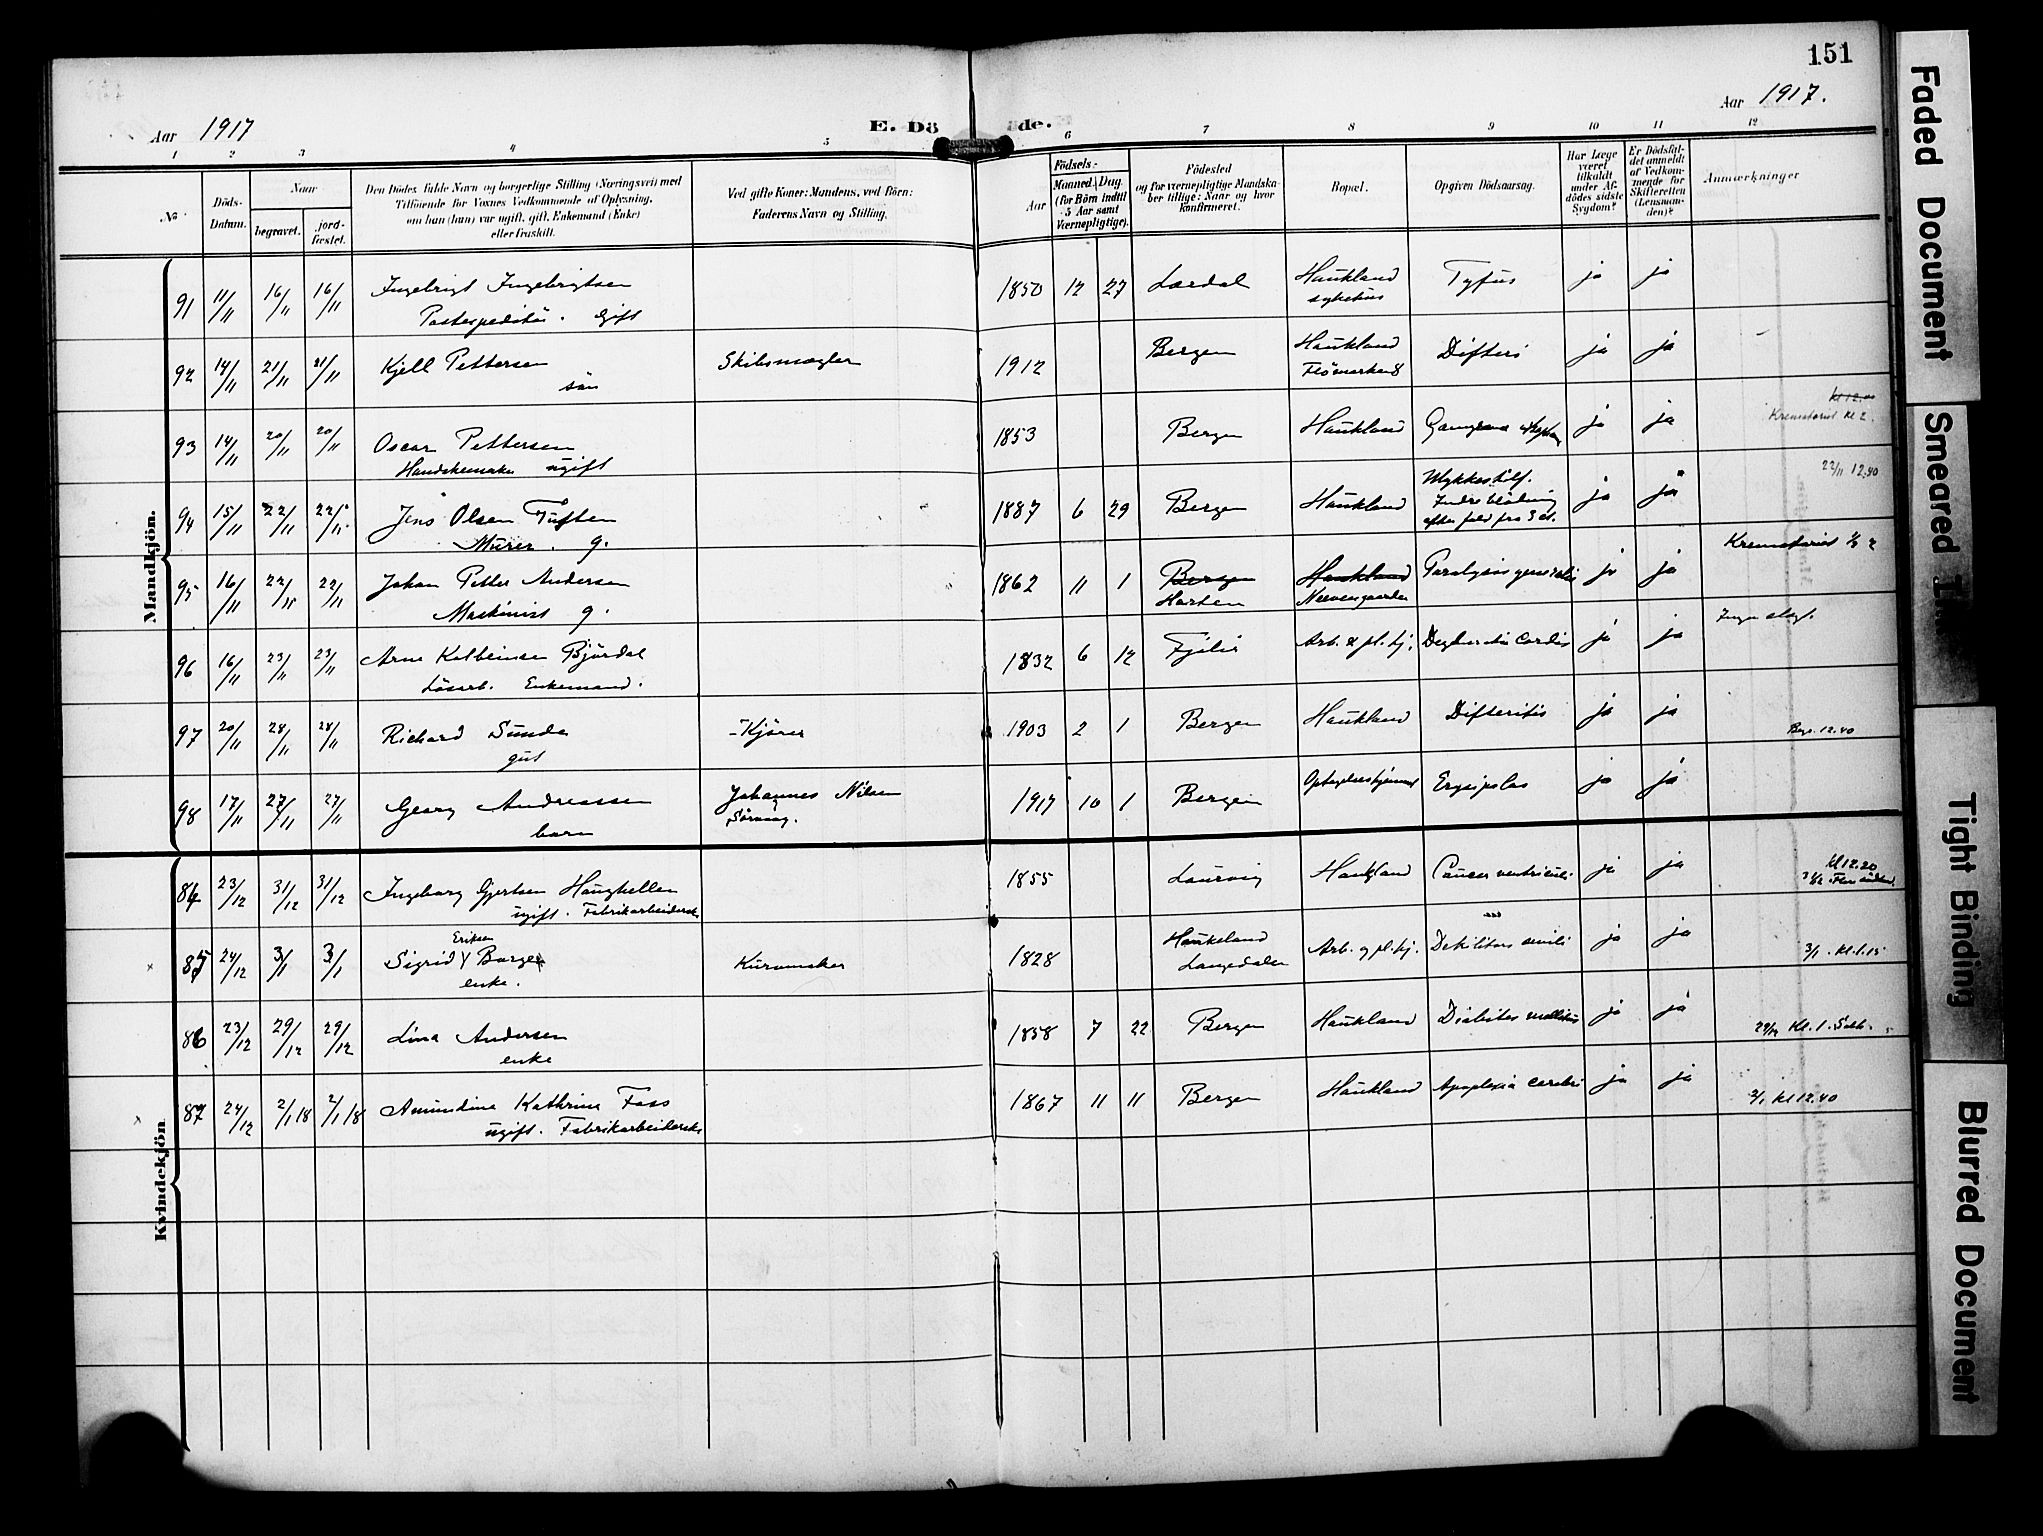 151
Aar 1917
E. Döde.
Aar 1917.
1 2 3 4 5 6 7 8 9 10 11 12
No
Döds-Datum.
Naar
begravet.
jord-fæstet.
Den Dödes fulde Navn og borgerlige Stilling (Næringsvei) med
Tilföiende for Voxnes Vedkommende af Oplysning,
om han (hun) var ugift, gift, Enkemand (Enke)
eller fraskilt.
Ved gifte Koner: Mandens, ved Börn:
Faderens Navn og Stilling.
Födsels-
Aar
Maaned. Dag.
(for Börn indtil
5 Aar samt
Værnepligtige).
Födested
og for værnepligtige Mandska-
ber tillige: Naar og hvor
konfirmeret.
Bopæl.
Opgiven Dödsaarsag.
Har Læge
været
tilkaldt
under Af-
dödes sidste
Sygdom?
Er Dödsfal-
det anmeldt
af Vedkom-
mende for
Skifteretten
(Lensman-
den)?
Anmærkninger
Mandkjön.
91 11/11 16/11 16/11 Ingebrigt Ingebrigtsen 1850 12 27 Lærdal Haukland Tyfus ja ja
Postexpeditör. Gift sykehus
92 14/11 21/11 21/11 Kjell Pettersen Skibsmægler 1912 Bergen Haukland Difteri ja ja
sön
93 14/11 20/11 20/11 Oscar Pettersen 1853 Bergen Haukland Gangræna ja ja Krematoriet kl 2.
Handskemaker ugift
94 15/11 22/11 22/11 Jens Olsen Tuften 1887 6 29 Bergen Haukland Ulykkestilf. ja ja 22/11 12.40
Murer. g. Indre blödning
efter fald fra 3 et.
95 16/11 22/11 22/11 Johan Petter Andersen 1862 11 1 Bergen Haukland Paralysis generalis ja ja Krematoriet
Maskinist g. Horten Neevengaarden
96 16/11 23/11 23/11 Arne Kolbeinsen Björdal 1832 6 12 Arb. & pl. hj. Cordis ja ja Ingen slegt.
Lösarb. Enkemand.
97 20/11 28/11 28/11 Richard Sunde - Kjörer 1903 2 1 Bergen Haukland Difteritis ja ja 12.40
gut
98 17/11 27/11 27/11 Georg Andreassen Johannes Nilsen 1917 10 1 Bergen Erysipelas ja ja
barn
Kvindekjön
84 23/12 31/12 31/12 Ingeborg Gjertsen Haughellen 1855 Laurvig Haukland Cancer ventriculi ja ja kl 12.20
ugift. Fabrikarbeiderske
Eriksen
85 24/12 3/1 3/1 Sigrid Borge Kurvmaker 1828 Haukeland Arb. og pl. hj. Debilitas senilis ja ja 3/1. kl. 1.15
enke. Langedalen
86 23/12 29/12 29/12 Lina Andersen 1858 7 22 Bergen Haukland Diabetes mellitus ja ja 29/12 kl. 1. Solh.
enke
87 24/12 2/1 18 2/1 18 Amundine Kathrine Foss 1867 11 11 Bergen Haukland Apoplexia cerebri ja ja 2/1 kl 12.40
ugift. Fabrikarbeiderske
Faded Document
Smeared
Tight Binding
Blurred Document